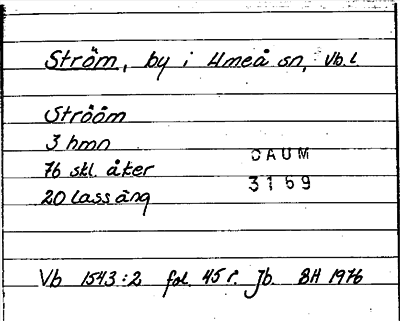 Ström, by i Umeå sn, Vb.l.
Strööm
3 hmn
76 skl. åker
DAUM
20 lass äng
3169
Vb 1543:2 fol. 45 r. Jb. BH 1976